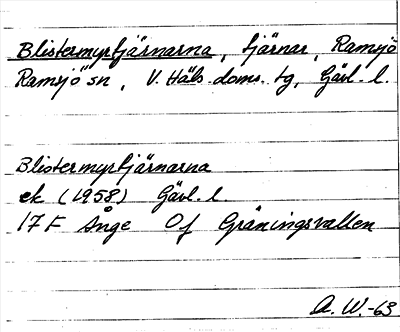 Blistermyrtjärnarna, tjärnar, Ramsjö
Ramsjö sn, V. Häls. doms. tg, Gävl. l.
Blistermyrtjärnarna
ek (1958) Gävl. l.
17F Ånge Of Gräningsvallen
A. W. -63